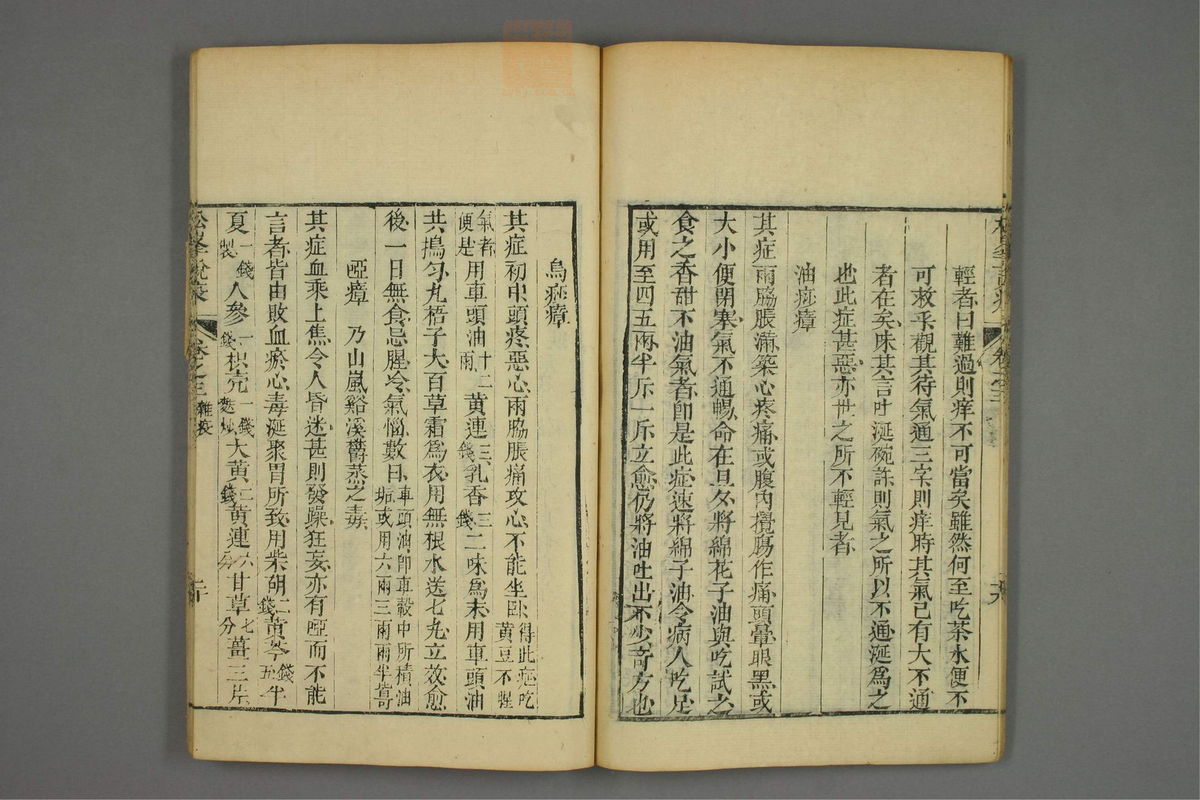 輕者曰難過則痒不可當矣雖然何至吃茶水便不
可救乎觀其待氣通三字則痒時其氣已有大不通
者在矣味其言吐涎碗許則氣之所以不通涎爲之
也此症甚惡亦世之所不輕見者
油痧瘴
其症兩脇脹滿築心疼痛或腹內攪腸作痛頭暈眼黑或
大小便閉塞氣不通暢命在旦夕將綿花子油與吃試之
食之香甜不油氣者卽是此症速將綿子油令病人吃足
或用至四五兩半斤一斤立愈仍將油吐出不少奇方也
烏痧瘴
其症初中頭疼惡心兩脇脹痛攻心不能坐臥得此症吃黃豆不腥
氣者便是用車頭油十二兩黃連三錢乳香三錢二味爲末用車頭油
共搗勻丸梧子大百草霜爲衣用無根水送七丸立效愈
後一日無食忌腥冷氣惱數日車頭油卽車轂中所積油垢或用六兩三兩兩半皆
啞瘴 乃山嵐谿溪欝蒸之毒
其症血乘上焦令人昏迷甚則發躁狂妄亦有啞而不能
言者皆由敗血瘀心毒涎聚胃所致用柴胡二錢黃芩錢半五
夏一錢製人參一錢枳壳一錢麩炒大黃二錢黃連六分甘草七分薑三片
松峯說疫 卷之三 雜疫 二十